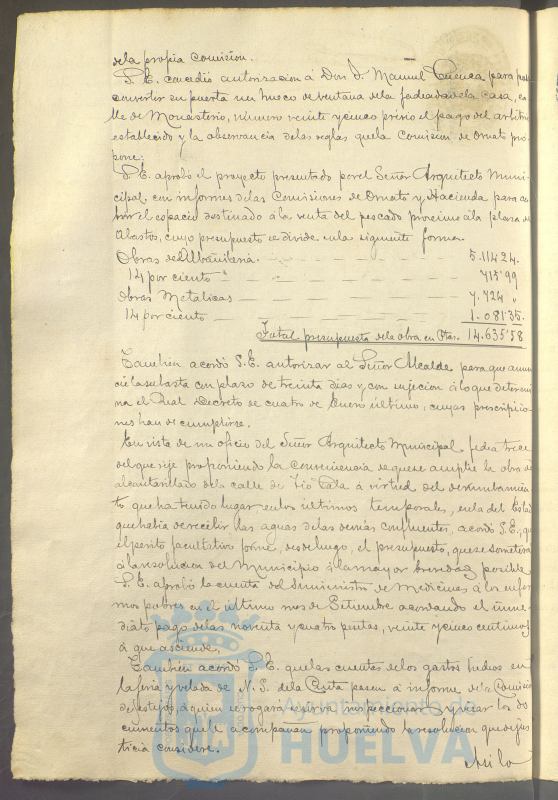 de la propia Comision.
S. E. concedió autorizacion á Don D. Manuel Cuenca para
convertir en puerta un hueco de ventana de la fachada de la casa, ca
lle de Monasterio, número veinte y cinco previo el pago del arbitrio
establecido y la observancia de las reglas que la Comision de Ornato pro
pone:
S. E. aprobó el proyecto presentado por el Señor Arquitecto Muni-
cipal con informes de las Comisiones de Ornato y Hacienda para cu
brir el espacio destinado á la venta del pescado proximo á la plaza de
Abastos, cuyo presupuesto se divide en la siguiente forma.
Obras de Albañileria. 5.114 24.
14 por ciento 715'99
Obras Metálicas 7.724 "
14 por ciento 1.081'35.
Total presupuesto de la obra en Ptas. 14.635'58
Tambien acordó S. E. autorizar al Señor Alcalde para que anun
cie la subasta con plazo de treinta dias y con sujecion á lo que determi
na el Real Decreto de cuatro de Enero último, cuyas prescripcio
nes han de cumplirse.
En vista de un oficio del Señor Arquitecto Municipal fecha trece
del que rije proponiendo la conveniencia de que se amplie la obra de
alcantarillado de la calle de Tio Pala á virtud del derrumbamien
to que ha tenido lugar en los últimos temporales, en la del
que habia de recibir las aguas de las demás confluentes, acordó S. E., que
el perito facultativo forme, desde luego, el presupuesto, que se someterá
á la resolucion del Municipio á la mayor brevedad posible
S. E. aprobó la cuenta del suministro de Medicinas á los enfer
mos pobres en el último mes de Setiembre acordando el inme-
diato pago de las noventa y cuatro pesetas, veinte y cinco centimos
á que asciende.
Tambien acordó S. E. que las cuentas de los gastos hechos en
la feria y velada de N. S. de la Cinta pasen á informe de la Comision
de festejos, á quien se rogara se sirva inspeccionar y revisar los do
cumentos que la acompañan proponiendo la resolucion que de jus
ticia considere.
Asilo
Ayuntamiento de
HUELVA